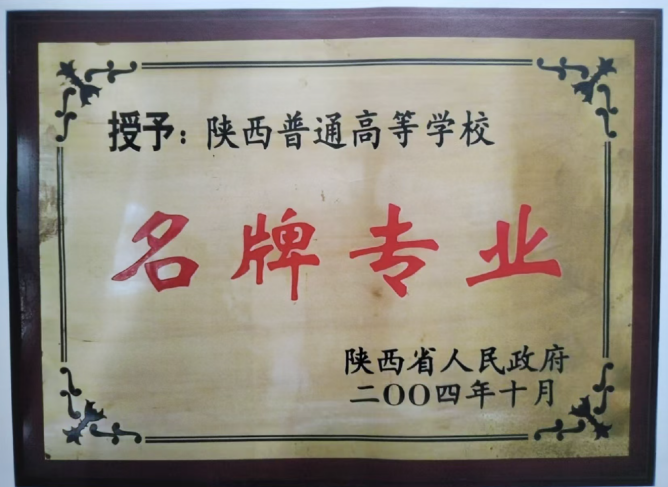 授予：陕西普通高等学校
名牌专业
陕西省人民政府
二〇〇四年十月